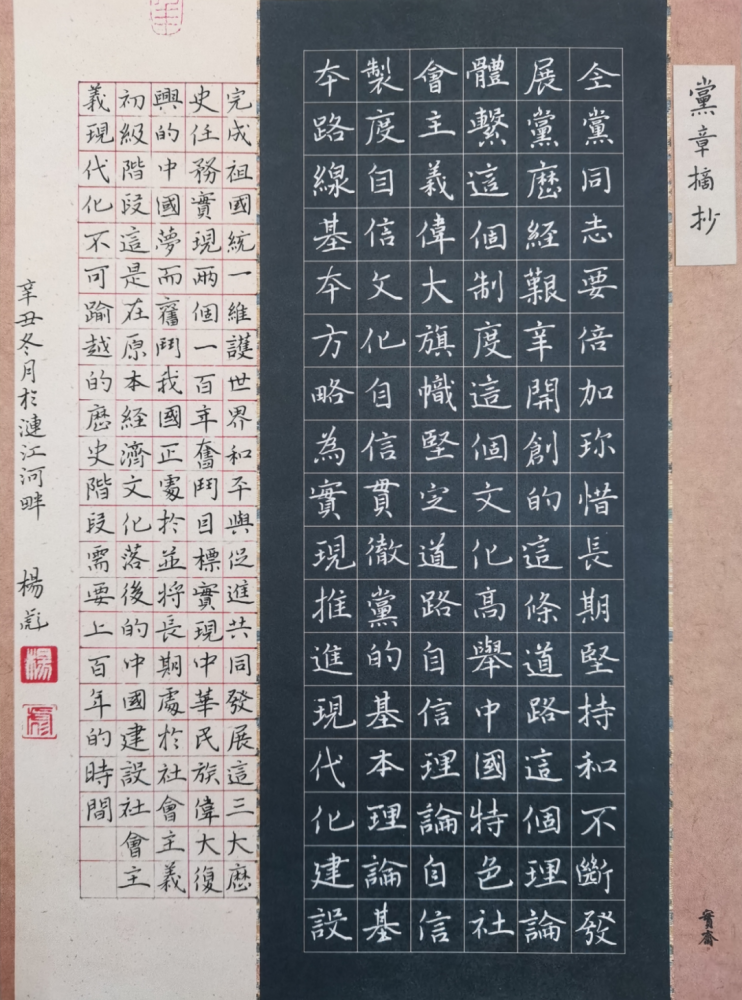 黨章摘抄
仝黨同志要倍加珎惜長期堅持和不斷發
展黨歷經艱辛開創的這條道路這個理論
體繫這個制度這個文化高舉中國特色社
會主義偉大旗幟堅定道路自信理論自信
製度自信文化自信貫徹黨的基本理論基
夲路線基夲方略為實現推進現代化建設
完成祖國統一維護世界和平與促進共同發展這三大歷
史任務實現兩個一百年奮鬥目標實現中華民族偉大復
興的中國夢而奮鬥我國正處於並將長期處於社會主義
初級階段這是在原本經濟文化落後的中國建設社會主
義現代化不可踰越的歷史階段需要上百年的時間
辛丑冬月於漣江河畔 楊彪